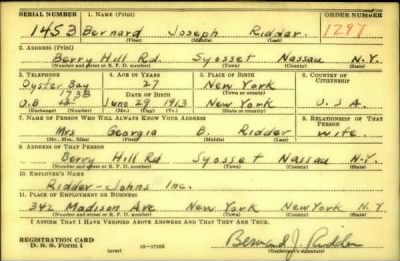 SERIAL NUMBER 1. NAME (Print) ORDER NUMBER
1453 Bernard Joseph Ridder. 1297
(First) (Middle) (Last)
2. ADDRESS (Print)
Berry Hill Rd. Syosset Nassau N.Y.
(Number and street or R. F. D. number) (Town) (County) (State)
3. TELEPHONE 4. AGE IN YEARS 5. PLACE OF BIRTH 6. COUNTRY OF CITIZENSHIP
Oyster Bay 27 New York
1735 DATE OF BIRTH (Town or county)
O.B. June 27 1913 New York U.S.A.
(Exchange) (No.) (Mo.) (Day) (Yr.) (State or country)
7. NAME OF PERSON WHO WILL ALWAYS KNOW YOUR ADDRESS 8. RELATIONSHIP OF THAT PERSON
Mrs Georgia B. Ridder wife.
(Mr., Mrs., Miss) (First) (Middle) (Last)
9. ADDRESS OF THAT PERSON
Berry Hill Rd Syosset Nassau N.Y.
(Number and street or R. F. D. number) (Town) (County) (State)
10. EMPLOYER'S NAME
Ridder-Johns Inc.
11. PLACE OF EMPLOYMENT OR BUSINESS
342 Madison Ave New York New York N.Y.
(Number and street or R. F. D. number) (Town) (County) (State)
I AFFIRM THAT I HAVE VERIFIED ABOVE ANSWERS AND THAT THEY ARE TRUE.
REGISTRATION CARD
D. S. S. FORM 1 (over) 16-17105 Bernard J. Ridder
(Registrant's signature)